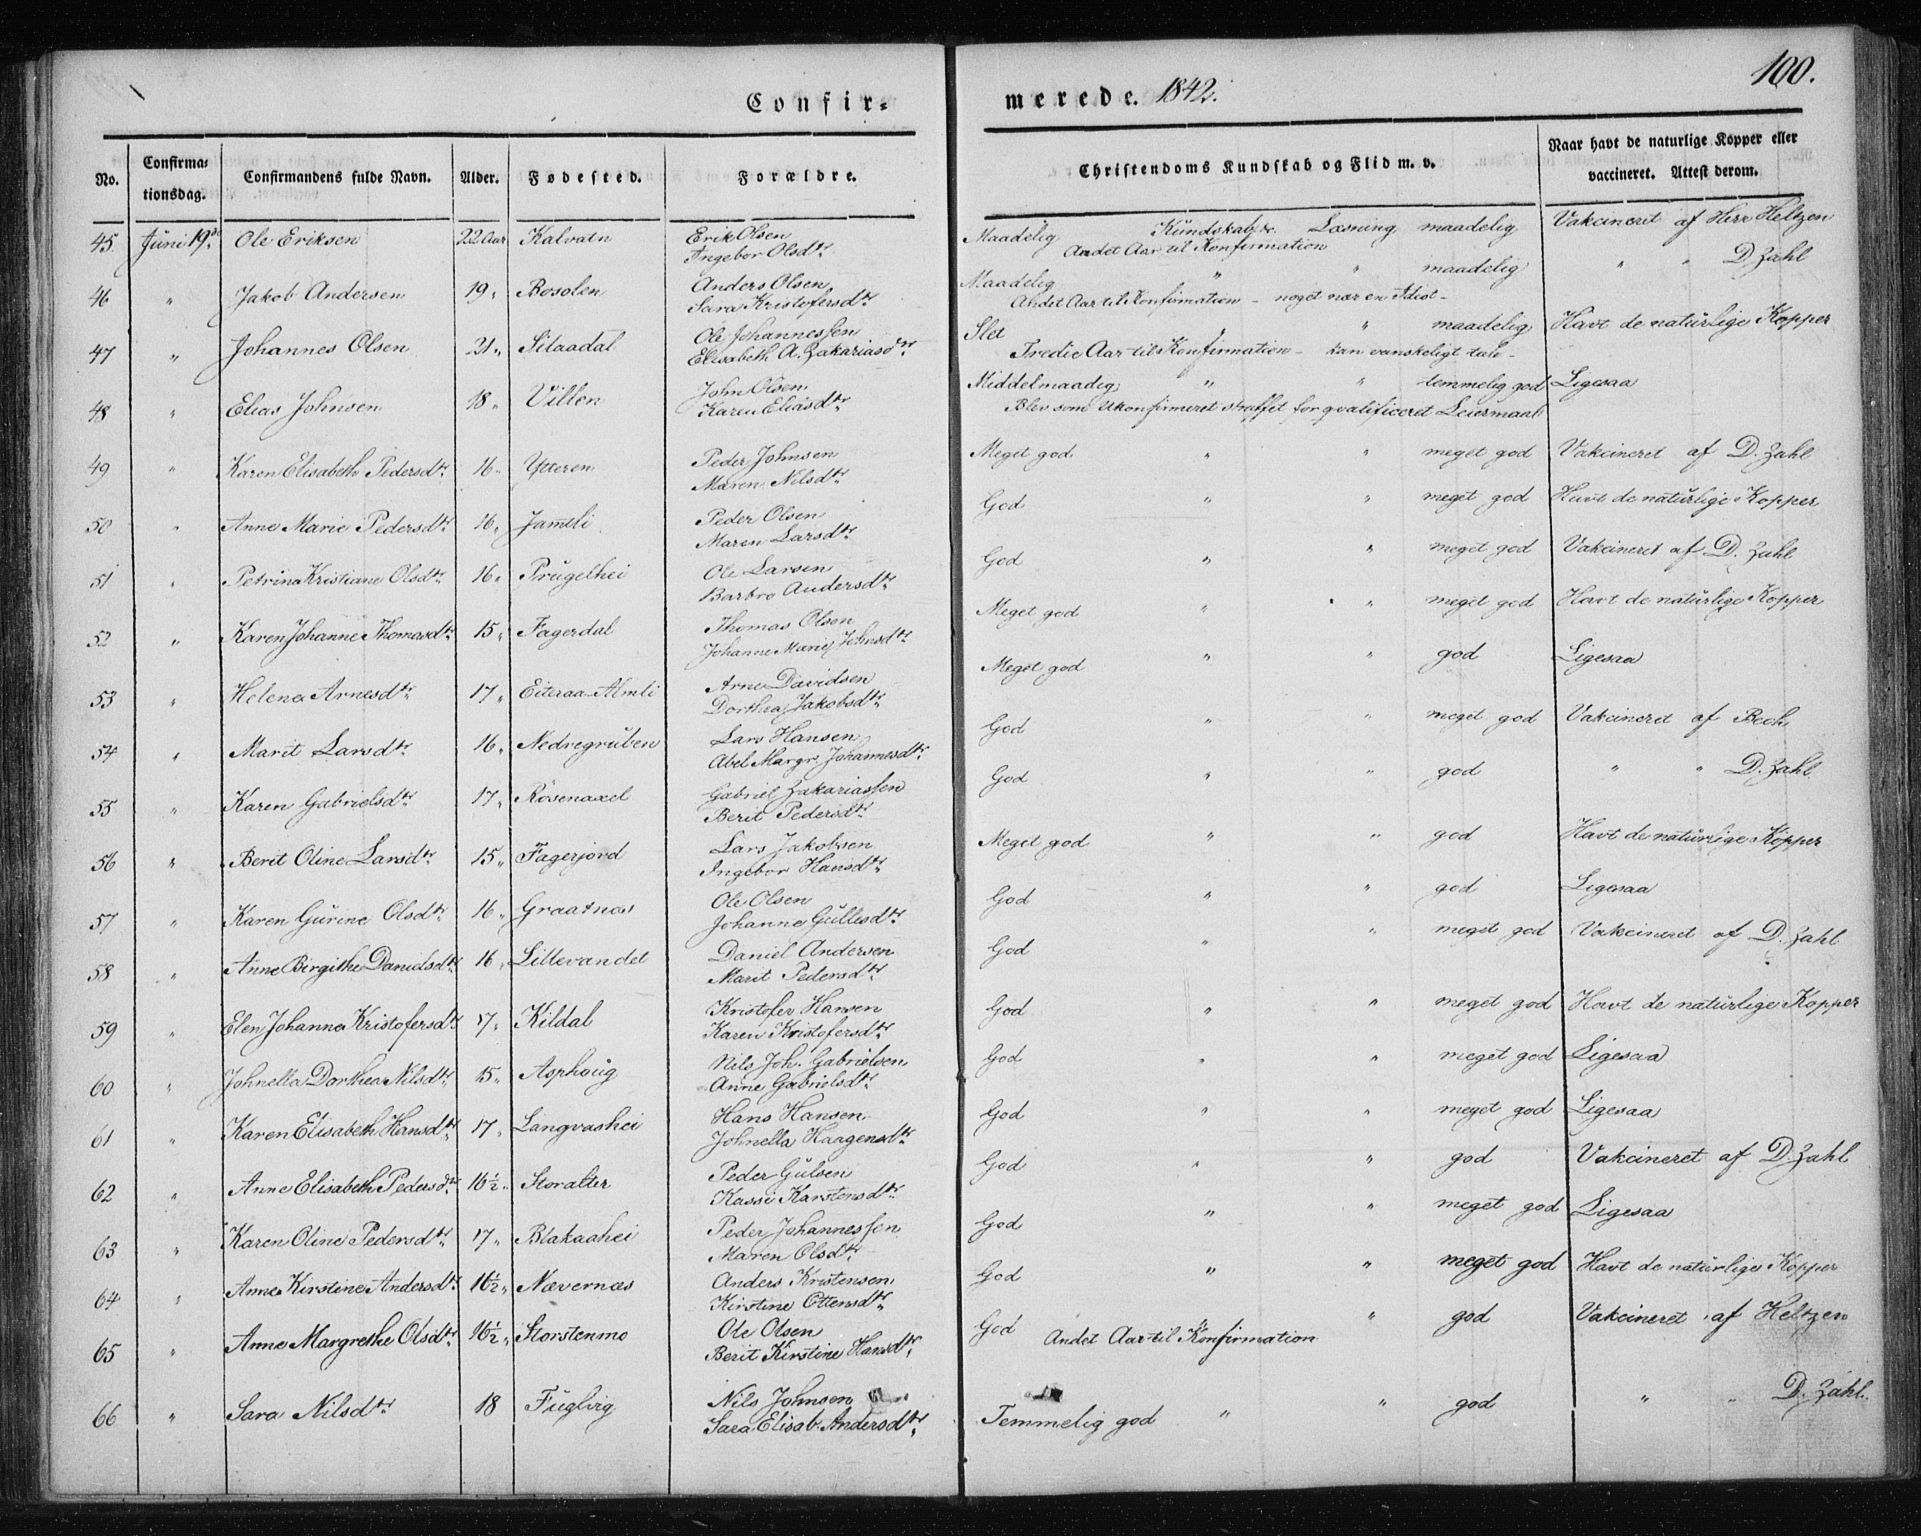 100.
Confir-
merede. 1842.
No. Confirma- tionsdag. Confirmandens fulde Navn. Alder. Fødested. Forældre. Christendoms Kundskab og Flid m. v. Naar havt de naturlige Kopper eller vaccineret. Attest derom.
45 Juni 19de Ole Eriksen 22 Aar Kalvatn Erik Olsen Maadelig Kundskab &c. Læsning maadelig Vakcineret af Herr Heltzen
Ingebor Olsdtr Andet Aar til Konfirmation
46 " Jakob Andersen 19 " Bosolen Anders Olsen Maadelig " " maadelig " " D. Zahl
Sara Kristofersdtr Andet Aar til Konfirmation - noget nær en Idiot -
47 " Johannes Olsen 21 " Silaadal Ole Johannessen Slet " " maadelig Havt de naturlige Kopper
Elisabeth A. Zakariasdtr Tredie Aar til Konfirmation - kan vanskeligt tale -
48 " Elias Johnsen 18 " Villen John Olsen Middelmaadig " " temmelig god Ligesaa
Karen Eliasdtr Blev som Ukonfirmeret straffet for qvalificeret Leiermaal
49 " Karen Elisabeth Pedersdtr 16 " Ytteren Peder Johnsen Meget god " " meget god Vakcineret af D. Zahl
Maren Nilsdtr
50 " Anne Marie Pedersdtr 16 " Jamtli Peder Olsen God " " meget god Havt de naturlige Kopper
Maren Larsdtr
51 " Petrina Kristiane Olsdtr 16 " Prügelhei Ole Larsen God " " meget god Vakcineret af D. Zahl
Barbro Andersdtr
52 " Karen Johanne Thomasdtr 15 " Fagerdal Thomas Olsen Meget god " " meget god Havt de naturlige Kopper
Johanne Marie Johnsdtr
53 " Helena Arnesdtr 17 " Eiteraa-Almli Arne Davidsen Meget god " " god Ligesaa
Dorthea Jakobsdtr
54 " Marit Larsdtr 16 " Nedregruben Lars Hansen God " " meget god Vakcineret af Bech
Abel Margr. Johannesdtr
55 " Karen Gabrielsdtr 17 " Rösenaxel Gabriel Zakariassen God " " god " " D. Zahl
Berit Pedersdtr
56 " Berit Oline Larsdtr 15 " Fagerjord Lars Jakobsen Meget god " " god Havt de naturlige Kopper
Ingebor Hansdtr
57 " Karen Gurine Olsdtr 16 " Graatnæs Ole Olsen God " " god Ligesaa
Johanne Gullesdtr
58 " Anne Birgithe Danielsdtr 16 " Lillevandet Daniel Andersen God " " meget god Vakcineret af D. Zahl
Marit Pedersdtr
59 " Elen Johanna Kristofersdtr 17 " Kildal Kristofer Hansen God " " meget god Havt de naturlige Kopper
Karen Kristofersdtr
60 " Johnella Dorthea Nilsdtr 15 " Asphoug Nils Joh. Gabrielsen God " " meget god Ligesaa
Anne Gabrielsdtr
61 " Karen Elisabeth Hansdtr 17 " Langvashei Hans Hansen God " " meget god Ligesaa
Johnella Haagensdtr
62 " Anne Elisabeth Pedersdtr 16½ " Storalter Peder Gulsen God " " god Vakcineret af D. Zahl
Kassi Karstensdtr
63 " Karen Oline Pedersdtr 17 " Blakaahei Peder Johannessen God " " meget god Ligesaa
Maren Olsdtr
64 " Anne Kirstine Andersdtr 16½ " Nævernæs Anders Kristensen God " " meget god Havt de naturlige Kopper
Kirstine Ottersdtr
65 " Anne Margrethe Olsdtr 16½ " Storstenmo Ole Olsen God Andet Aar til Konfirmation " god Vakcineret af Heltzen
Berit Kirstine Hansdtr
66 " Sara Nilsdtr 18 Fuglvig Nils Johnsen Temmelig god " " god " " D. Zahl.
Sara Elisab. Andersdtr